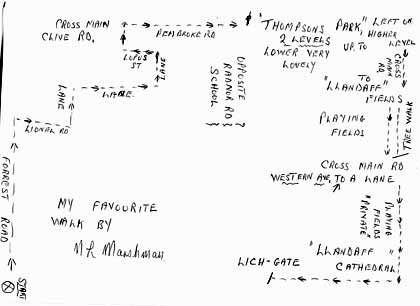 CROSS MAIN
CLIVE RD.
PEMBROKE RD
LOPUS
ST
LANE
LANE
LABE.
LIONAL RD
FORREST ROAD
START
OPPOSITE
RADNOR RD
SCHOOL
"THOMPSONS PARK," LEFT OR
2 LEVELS UP TO HIGHER
LOWER VERY LEVEL
LOVELY
CROSS
MAIN
RD
TO
"LLANDAFF"
FIELDS
PLAYING
FIELDS
TREE WALK
CROSS MAIN RD
WESTERN AVE, TO A LANE
PLAYING
FIELDS
"PRIVATE"
"LLANDAFF"
CATHEDRAL
LICH-GATE
MY FAVOURITE
WALK BY
Mr Marshman